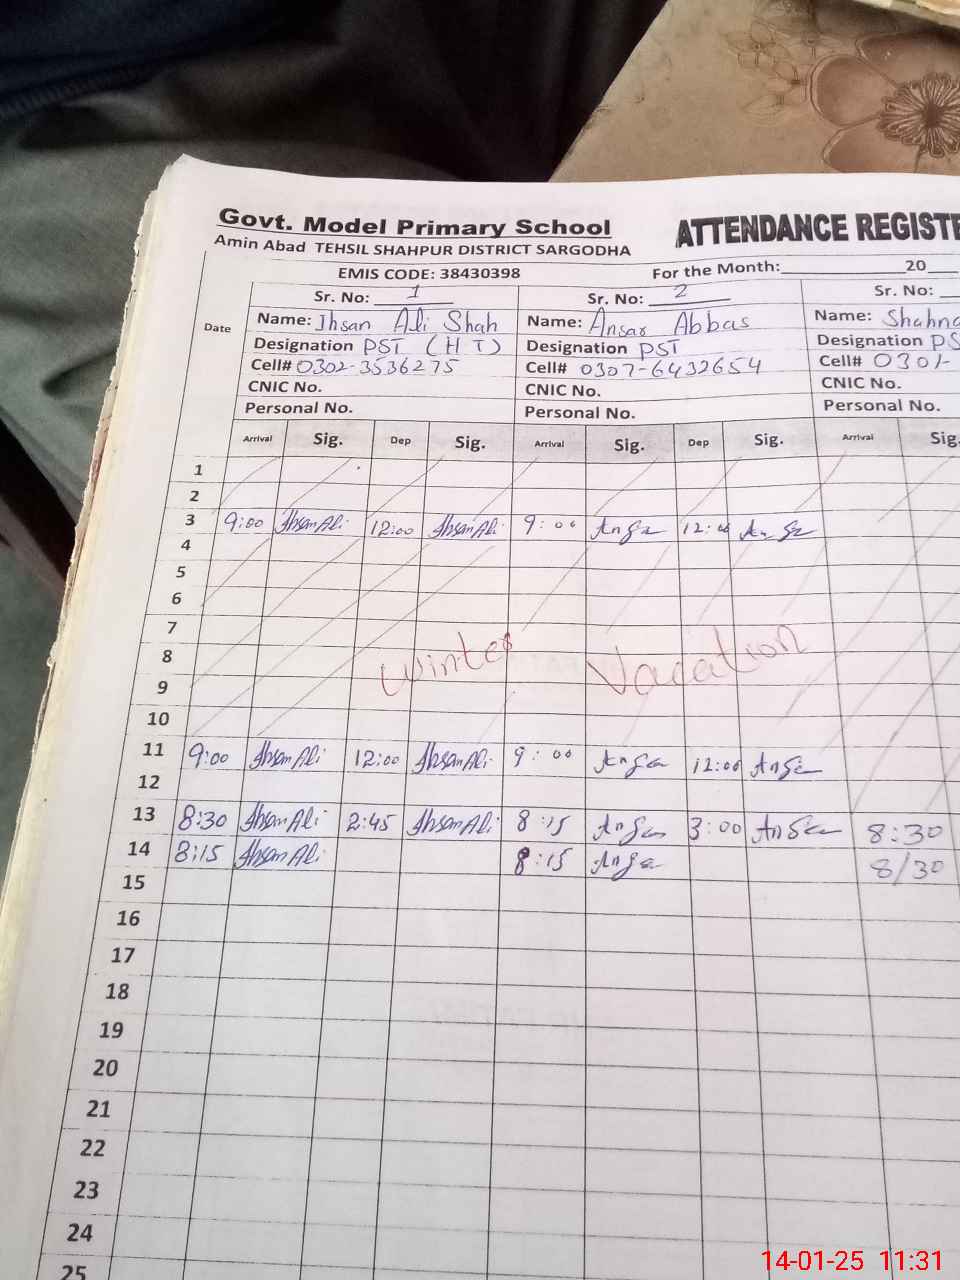 Govt. Model Primary School ATTENDANCE REGISTE
Amin Abad TEHSIL SHAHPUR DISTRICT SARGODHA
EMIS CODE: 38430398 For the Month: 20
Sr. No: 1 Sr. No: 2 Sr. No:
Date
Name: Ihsan Ali Shah Name: Ansar Abbas Name: Shahna
Designation PST (HT) Designation PST Designation PS
Cell# 0302-3536275 Cell# 0307-6432654 Cell# 0301-
CNIC No. CNIC No. CNIC No.
Personal No. Personal No. Personal No.
Arrival Sig. Dep Sig. Arrival Sig. Dep Sig. Arrival Sig.
1
2
3 9:00 Ihsan Ali 12:00 Ihsan Ali 9:00 Ansa 12:00 Ansa
4
5
6
7
8 Winter Vacation
9
10
11 9:00 Ihsan Ali 12:00 Ihsan Ali 9:00 Ansa 12:00 Ansa
12
13 8:30 Ihsan Ali 2:45 Ihsan Ali 8:15 Ansa 3:00 Ansa 8:30
14 8:15 Ihsan Ali 8:15 Ansa 8/30
15
16
17
18
19
20
21
22
23
24
25
14-01-25 11:31